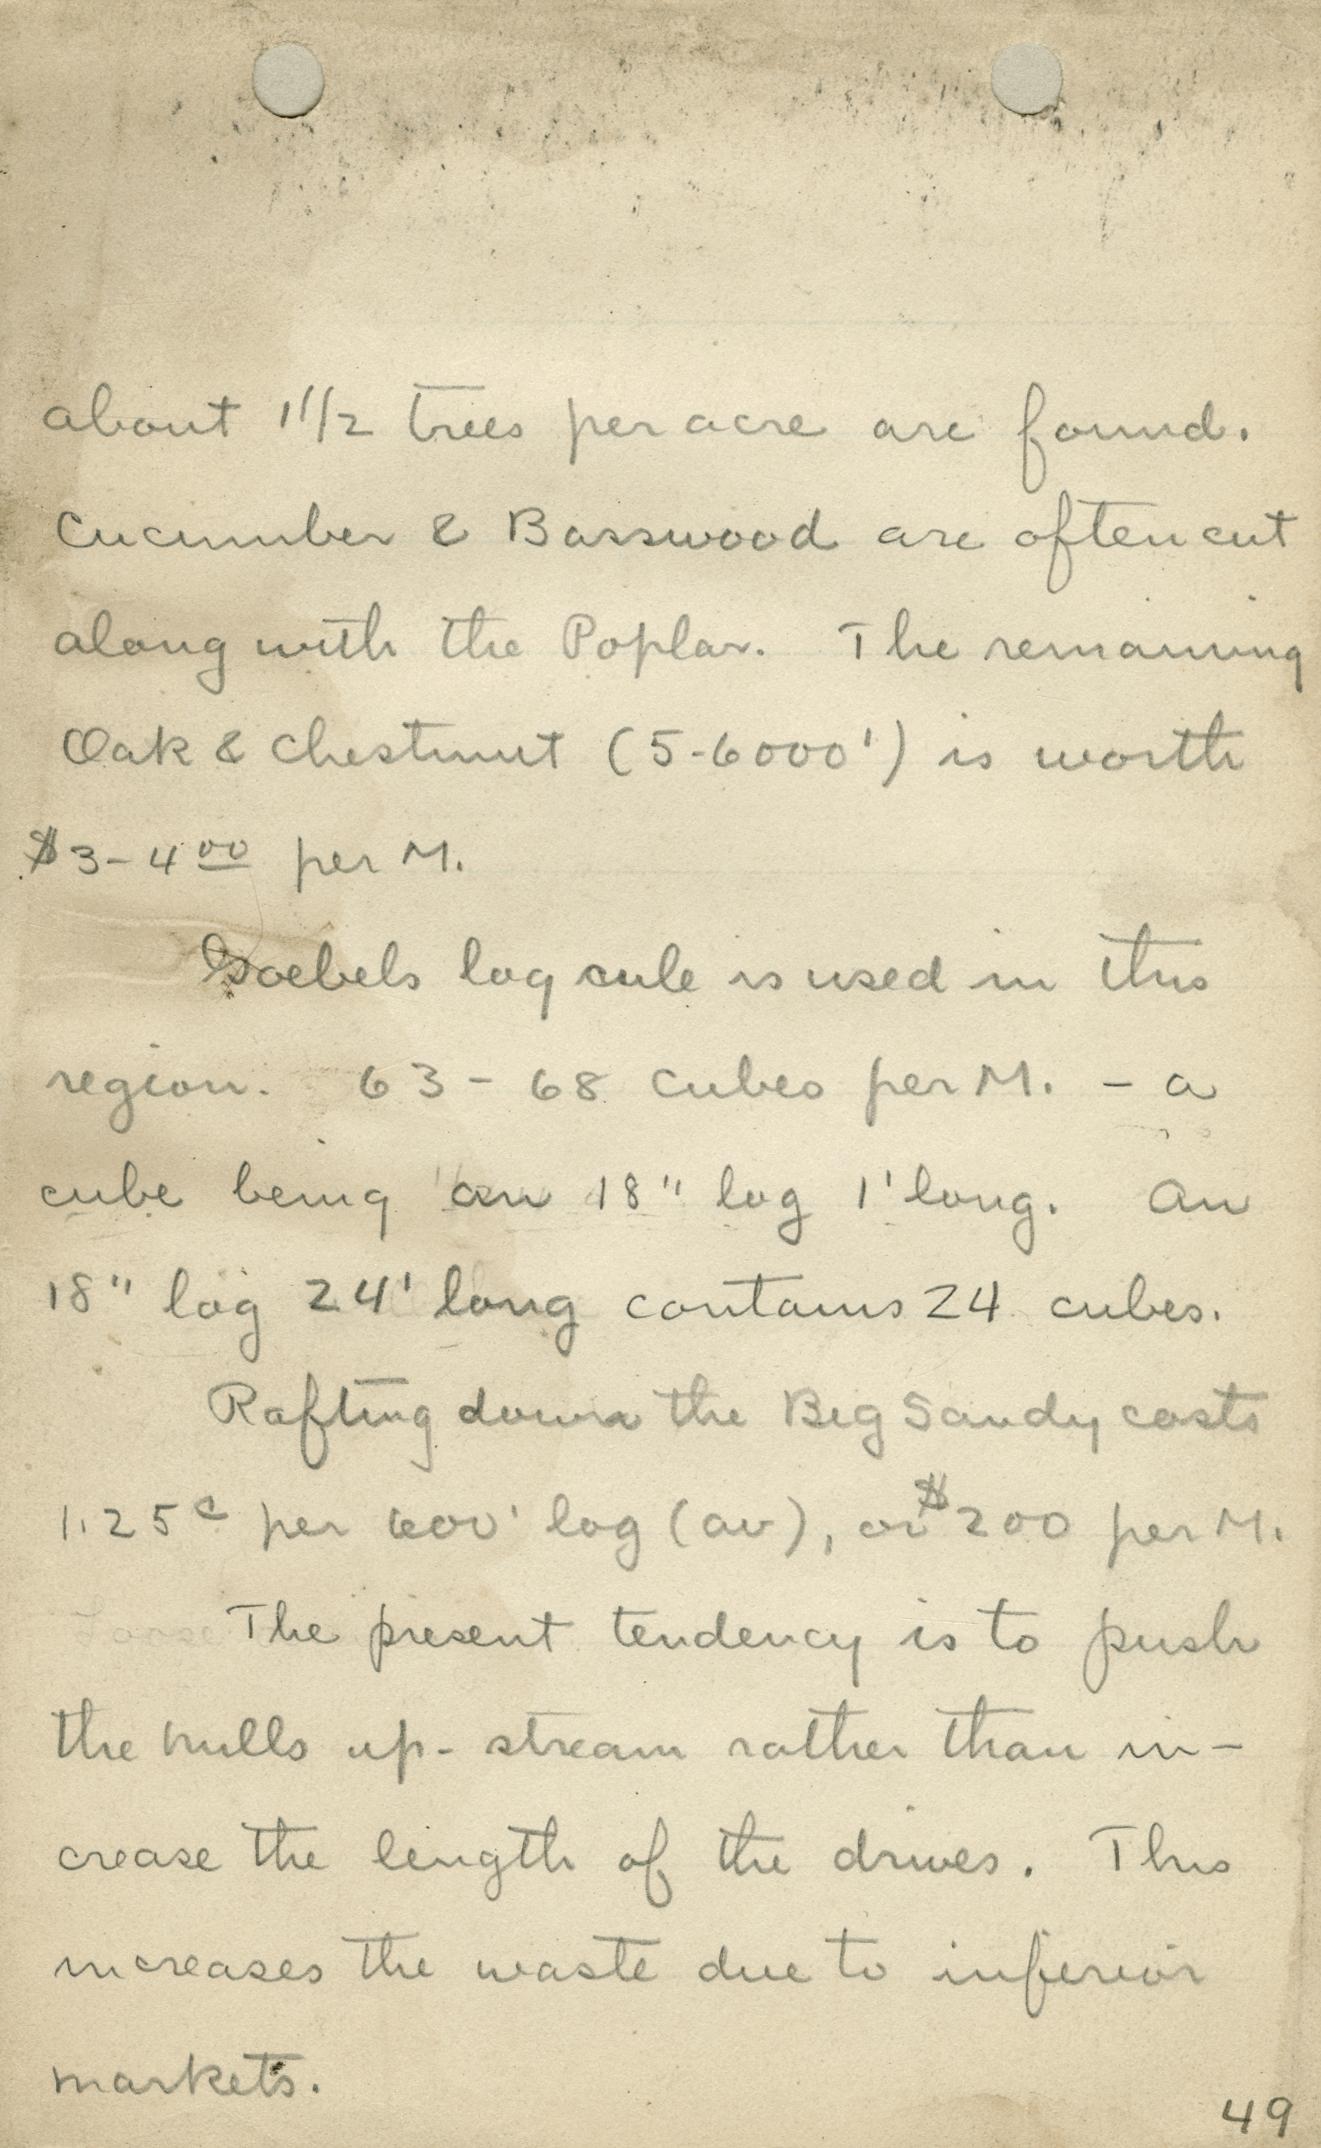 about 1 1/2 trees per acre are found.
Cucumber & Basswood are often cut
along with the Poplar. The remaining
Oak & Chestnut (5-6000') is worth
$3-4 00 per M.
Goebels log cule is used in this
region. 63 - 68 cubes per M. - a
cube being an 18" log 1' long. An
18" log 24' long contains 24 cubes.
Rafting down the Big Sandy costs
1.25c per 600' log (av), or $200 per M.
The present tendency is to push
the mills up-stream rather than in-
crease the length of the drives. This
increases the waste due to inferior
markets.
49